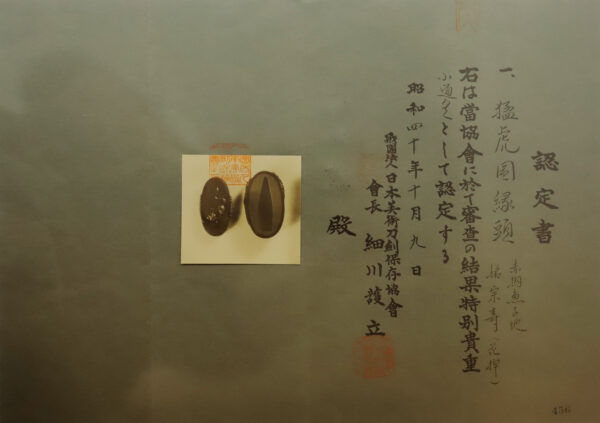 認定書
一、猛虎図縁頭
赤銅魚子地
銘 宗寿（花押）
右は當協會に於て審査の結果特別貴重
小道具として認定する
昭和四十年十月九日
財團法人日本美術刀劍保存協會
會長 細川護立
殿
456